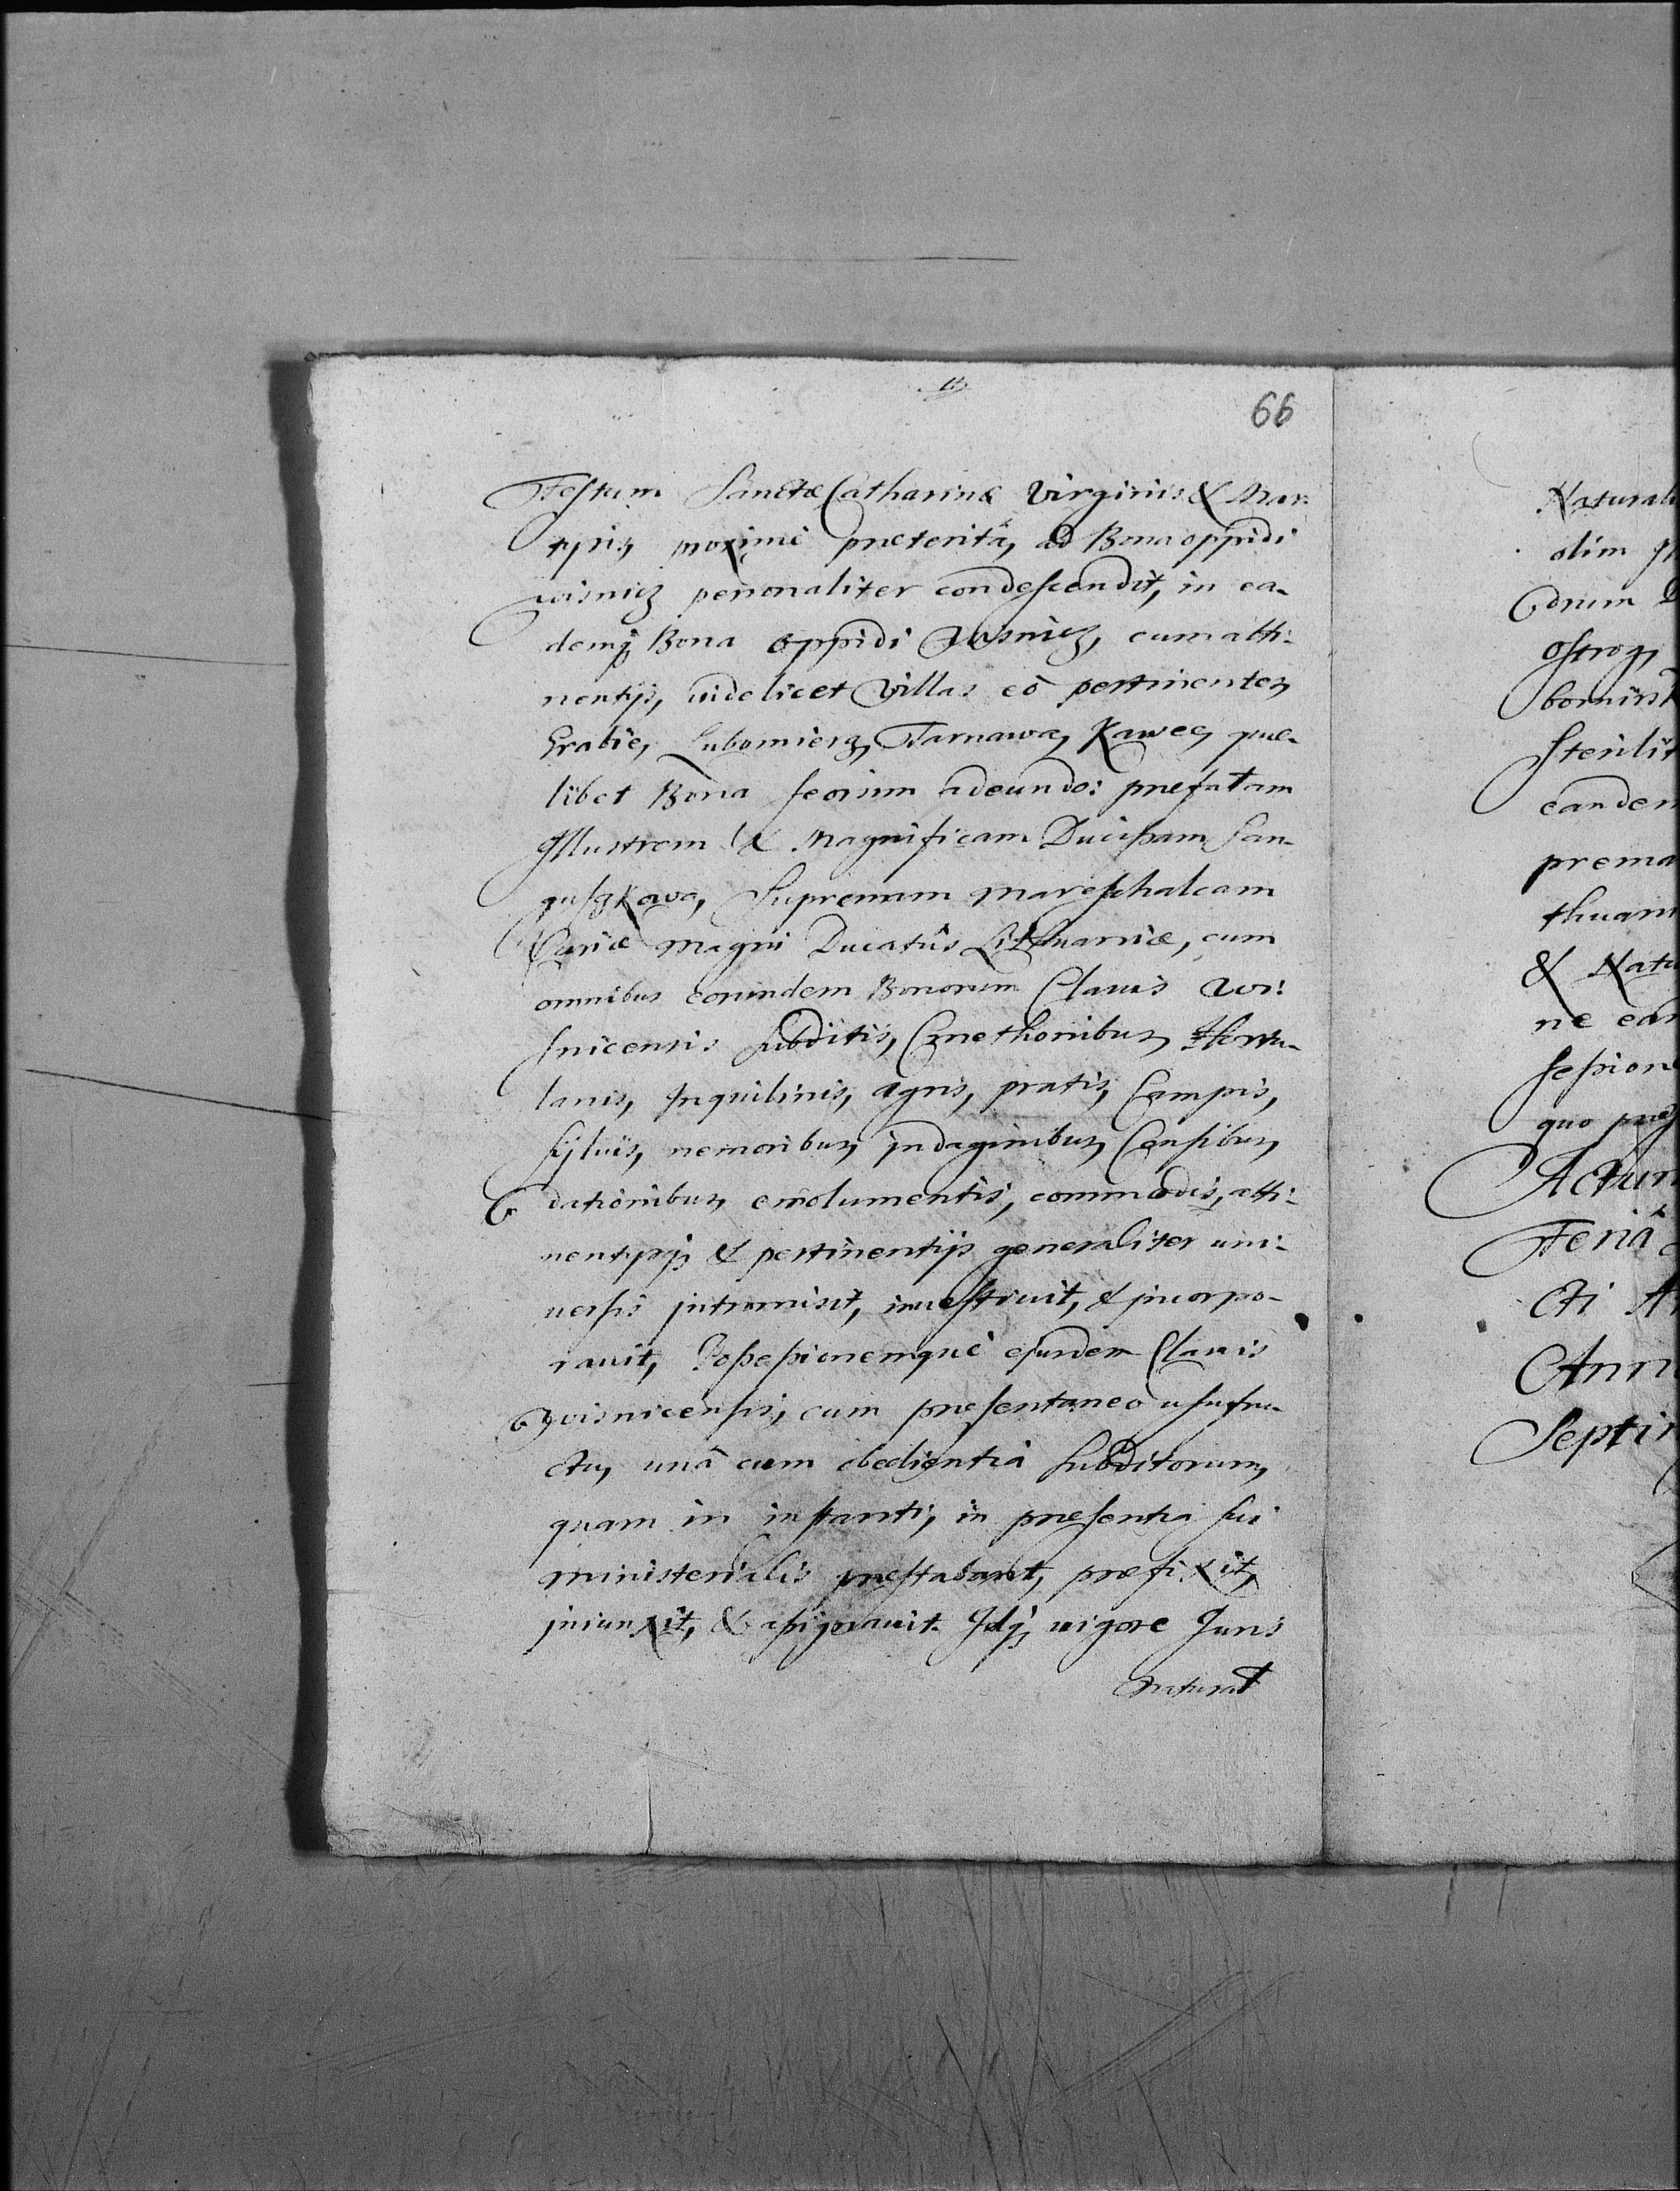 66
Festum Sanctæ Catharinæ Virginis & Mar:
tyris, proxime præteritâ, ad Bona oppidi
Wisnicz personaliter condescendit, in ea-
demq; Bona oppidi Wisnicz, cum atti-
nentijs, uidelicet Villas eò pertinentes,
Grabie, Lubomierz, Tarnawa, Kawec, quæ-
libet Bona seorsim adeundo: præfatam
Illustrem & Magnificam Ducissam San-
guszkowa, Supremam Mareschalcam
Curiæ Magni Ducatûs Lithuaniæ, cum
omnibus eorundem Bonorum Clauis Wi:
snicensis subditis, Cmethonibus, Hortu-
lanis, Inquilinis, agris, pratis, Campis,
syluis, nemoribus, indaginibus, Censibus,
dationibus, emolumentis, commodis, atti-
nentijsq; & pertinentijs generaliter uni-
uersis intromisit, inuestiuit, & incorpo-
rauit, Possessionemquè ejusdem Clauis
Wisnicensis, cum præsentaneo usufru-
ctu, unâ cum obedientiâ subditorum,
quam in instanti, in præsentia sui
ministerialis præstabant, præfixit,
iniunxit, & assignauit. Idq; uigore Juris
Naturat
Naturali
olim
drum
Ostrog
bomirsk
Sterilit
eandem
prema
thuani
& Natu
ne ean
sessione
quo
Actum
Feriâ
cti A
Ann
Septin